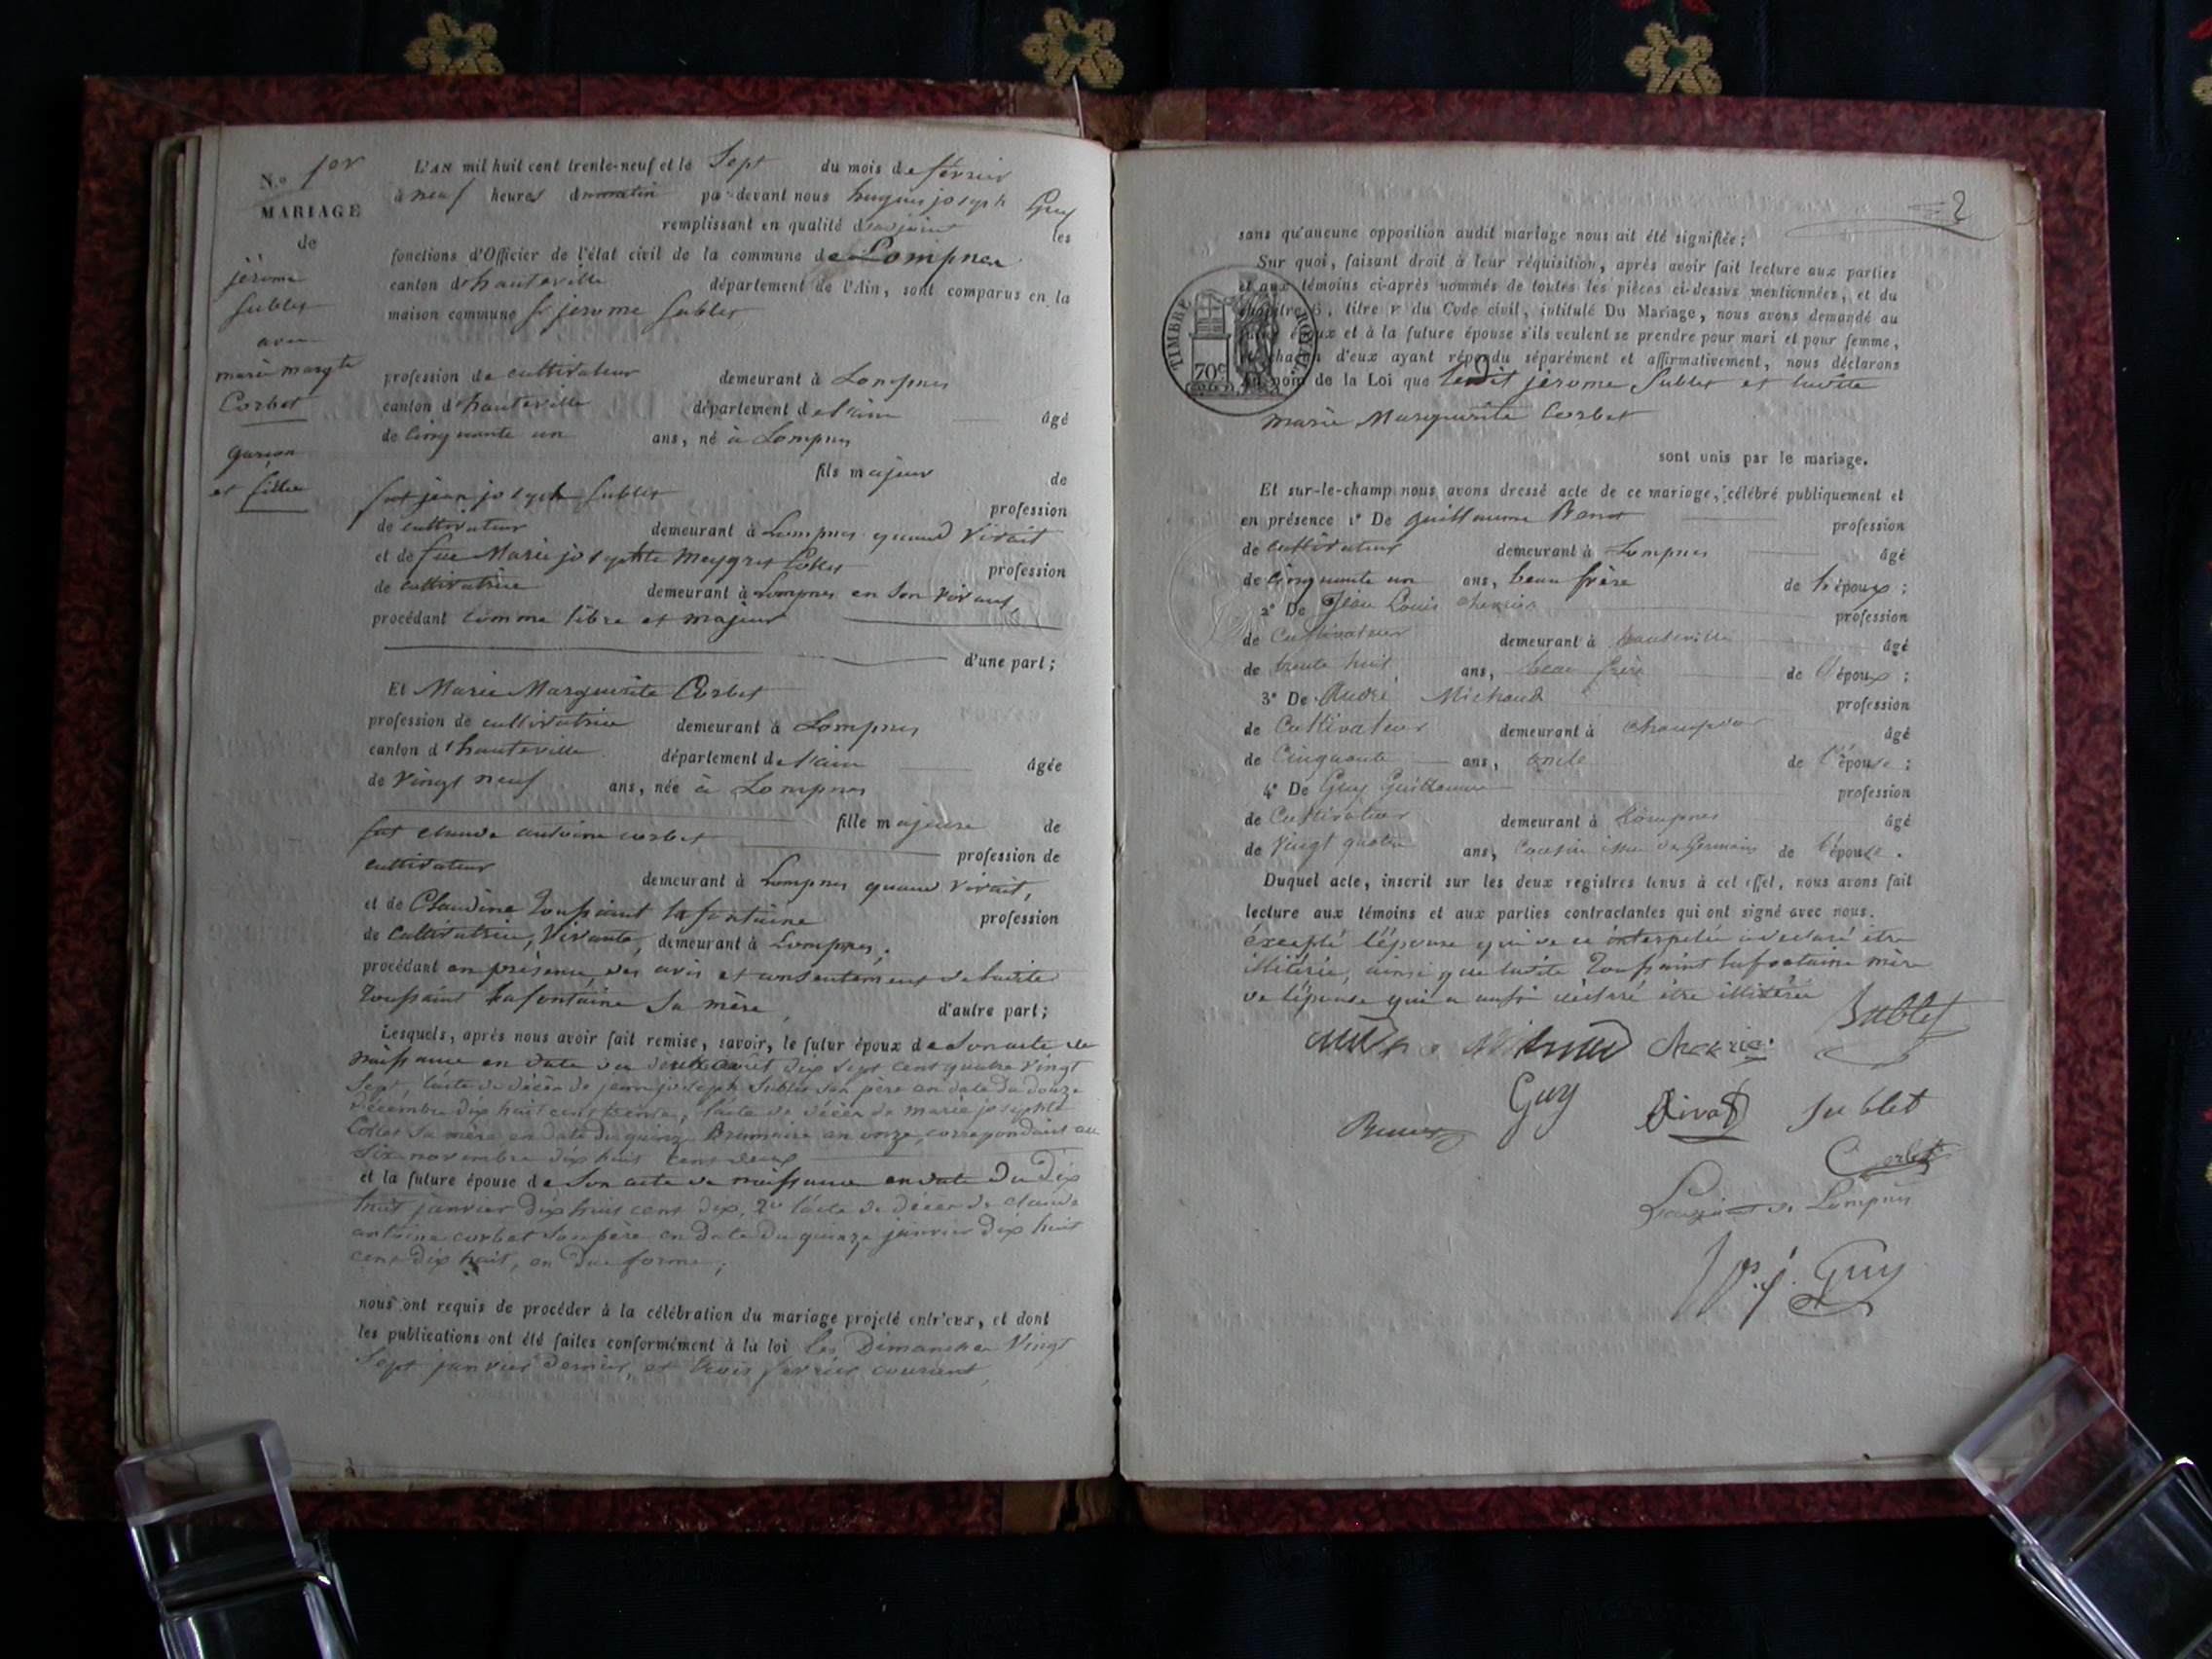 N.o 1er
MARIAGE
de
jérome
Sublet
avec
marie margte
Corbet
garson
et fille
L'AN mil huit cent trente-neuf et le Sept du mois de février
à neuf heures du matin par-devant nous hugues joseph Guy
remplissant en qualité d'adjoint les
fonctions d'Officier de l'état civil de la commune de Lompnes
canton d'hauteville département de l'Ain, sont comparus en la
maison commune Sr jerome Sublet
profession de cultivateur demeurant à Lompnes
canton d'hauteville département de l'ain âgé
de cinquante un ans, né à Lompnes
fils majeur de
fut jean joseph Sublet profession
de cultivateur demeurant à Lompnes quand vivait
et de fue Marie josephte Meygret Collet profession
de cultivatrice demeurant à Lompnes en son vivant,
procédant comme libre et majeur
d'une part;
Et Marie Marguerite Corbet
profession de cultivatrice demeurant à Lompnes
canton d'hauteville département de l'ain âgée
de vingt neuf ans, née à Lompnes
fille majeure de
fut claude antoine corbet profession de
cultivateur demeurant à Lompnes quand vivait,
et de Claudine Toussaint lafontaine profession
de cultivatrice, vivante, demeurant à Lompnes;
procédant en présence, des avis et consentement de ladite
Toussaint Lafontaine sa mère, d'autre part;
Lesquels, après nous avoir fait remise, savoir, le futur époux de son acte de
naissance en date du deux août dix sept cent quatre vingt
sept, l'acte de décès de jean joseph Sublet son père en date du douze
décembre dix huit cent trente, l'acte de décès de marie josephte
Collet sa mère en date du quinze brumaire an onze, correspondant au
six novembre dix huit cent deux
et la future épouse de son acte de naissance en date du dix
huit janvier dix huit cent dix, 2° l'acte de décès de claude
antoine corbet son père en date du quinze janvier dix huit
cent dix huit, en due forme;
nous ont requis de procéder à la célébration du mariage projeté entr'eux, et dont
les publications ont été faites conformément à la loi les Dimanches vingt
sept janvier dernier, et trois février courant,
2
sans qu'aucune opposition audit mariage nous ait été signifiée;
Sur quoi, faisant droit à leur réquisition, après avoir fait lecture aux parties
et aux témoins ci-après nommés de toutes les pièces ci-dessus mentionnées, et du
chapitre 6, titre v du Code civil, intitulé Du Mariage, nous avons demandé au
futur époux et à la future épouse s'ils veulent se prendre pour mari et pour femme,
et chacun d'eux ayant répondu séparément et affirmativement, nous déclarons
au nom de la Loi que ledit jérome Sublet et ladite
marie Marguerite Corbet
sont unis par le mariage.
TIMBRE ROYAL
70c
Et sur-le-champ nous avons dressé acte de ce mariage, célébré publiquement et
en présence 1° De guillaume profession
de cultivateur demeurant à Lompnes âgé
de cinquante un ans, beau frère de l'époux;
2° De Jean Louis Chervier profession
de Cultivateur demeurant à hauteville âgé
de trente huit ans, beau frère de l'époux;
3° De André Michaud profession
de Cultivateur demeurant à Champdor âgé
de Cinquante ans, oncle de l'épouse;
4° De Guy Guillaume profession
de Cultivateur demeurant à Lompnes âgé
de Vingt quatre ans, Cousin issu de Germain de l'épouse.
Duquel acte, inscrit sur les deux registres tenus à cet effet, nous avons fait
lecture aux témoins et aux parties contractantes qui ont signé avec nous.
éxcepté l'épouse qui de ce interpelée a declaré être
illitérée, ainsi que ladite Toussaint lafontaine mère
de l'épouse qui a aussi déclaré être illitérée
Sublet
Guy
Sublet
Corbet
de Lompnes
hs. j. Guy